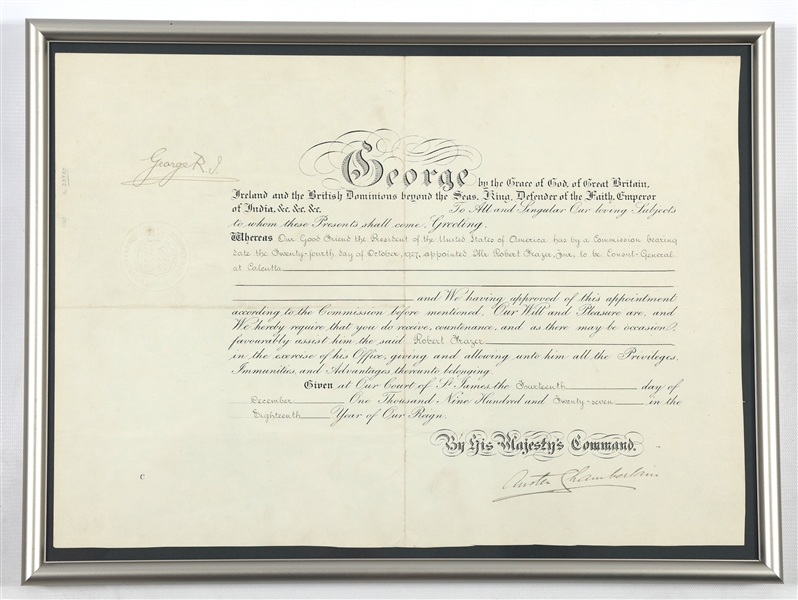 George R.I.
George by the Grace of God, of Great Britain,
Ireland and the British Dominions beyond the Seas, King, Defender of the Faith, Emperor
of India, &c. &c. &c. To All and Singular Our loving Subjects
to whom these Presents shall come, Greeting.
Whereas Our Good Friend the President of the United States of America has by a Commission bearing
date the Twenty-fourth day of October, 1927, appointed Mr Robert Frazer, Jnr, to be Consul-General
at Calcutta
and We having approved of this appointment
according to the Commission before mentioned, Our Will and Pleasure are, and
We hereby require that you do receive, countenance, and as there may be occasion,
favourably assist him the said Robert Frazer
in the exercise of his Office, giving and allowing unto him all the Privileges,
Immunities, and Advantages thereunto belonging.
Given at Our Court of St James, the Fourteenth day of
December One Thousand Nine Hundred and Twenty-seven in the
Eighteenth Year of Our Reign.
By His Majesty's Command.
Austen Chamberlain
C